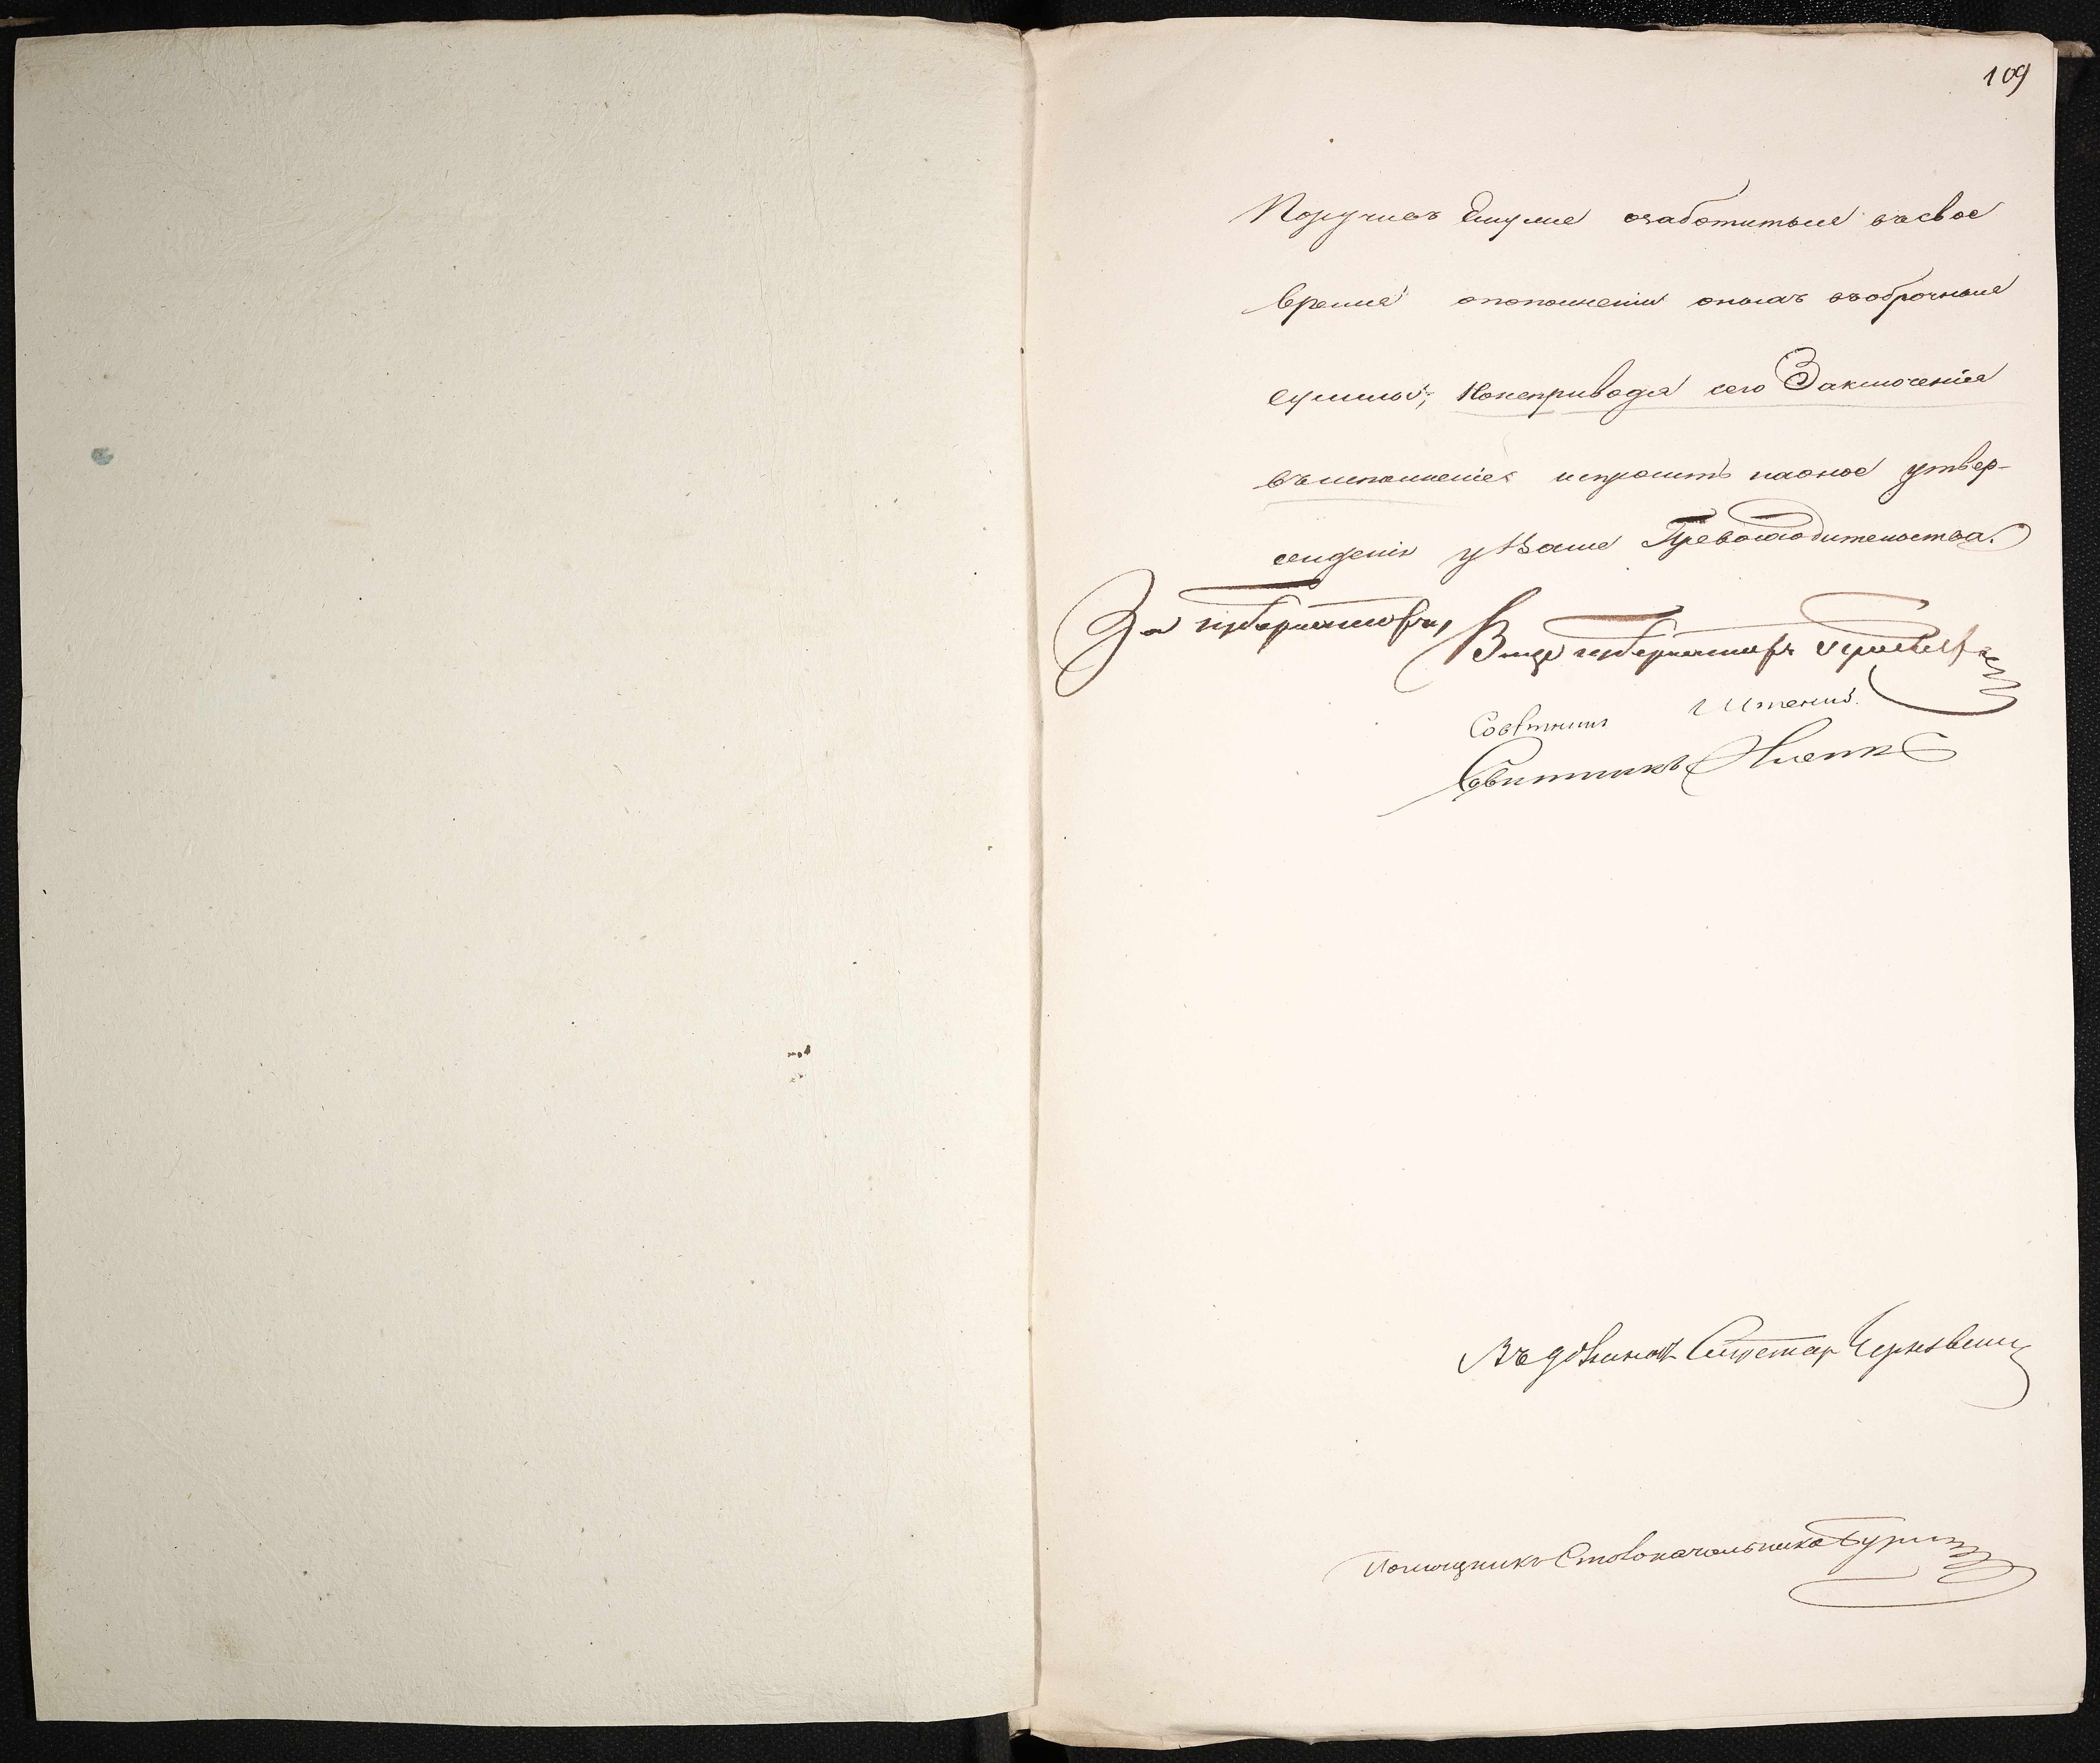 109
Поручивъ Ему же озаботиться въ свое
время о пополненіи оныхъ въ оброчныя
суммы; Но не приводя сего Заключенія
въ исполненіе испросить на оное утвер-
жденія у Ваше Превосходительства.
За губернатора, Вице губернаторъ
Совѣтникъ
Совѣтникъ
Въ должности Секретаря
Помощникъ Столоначальника